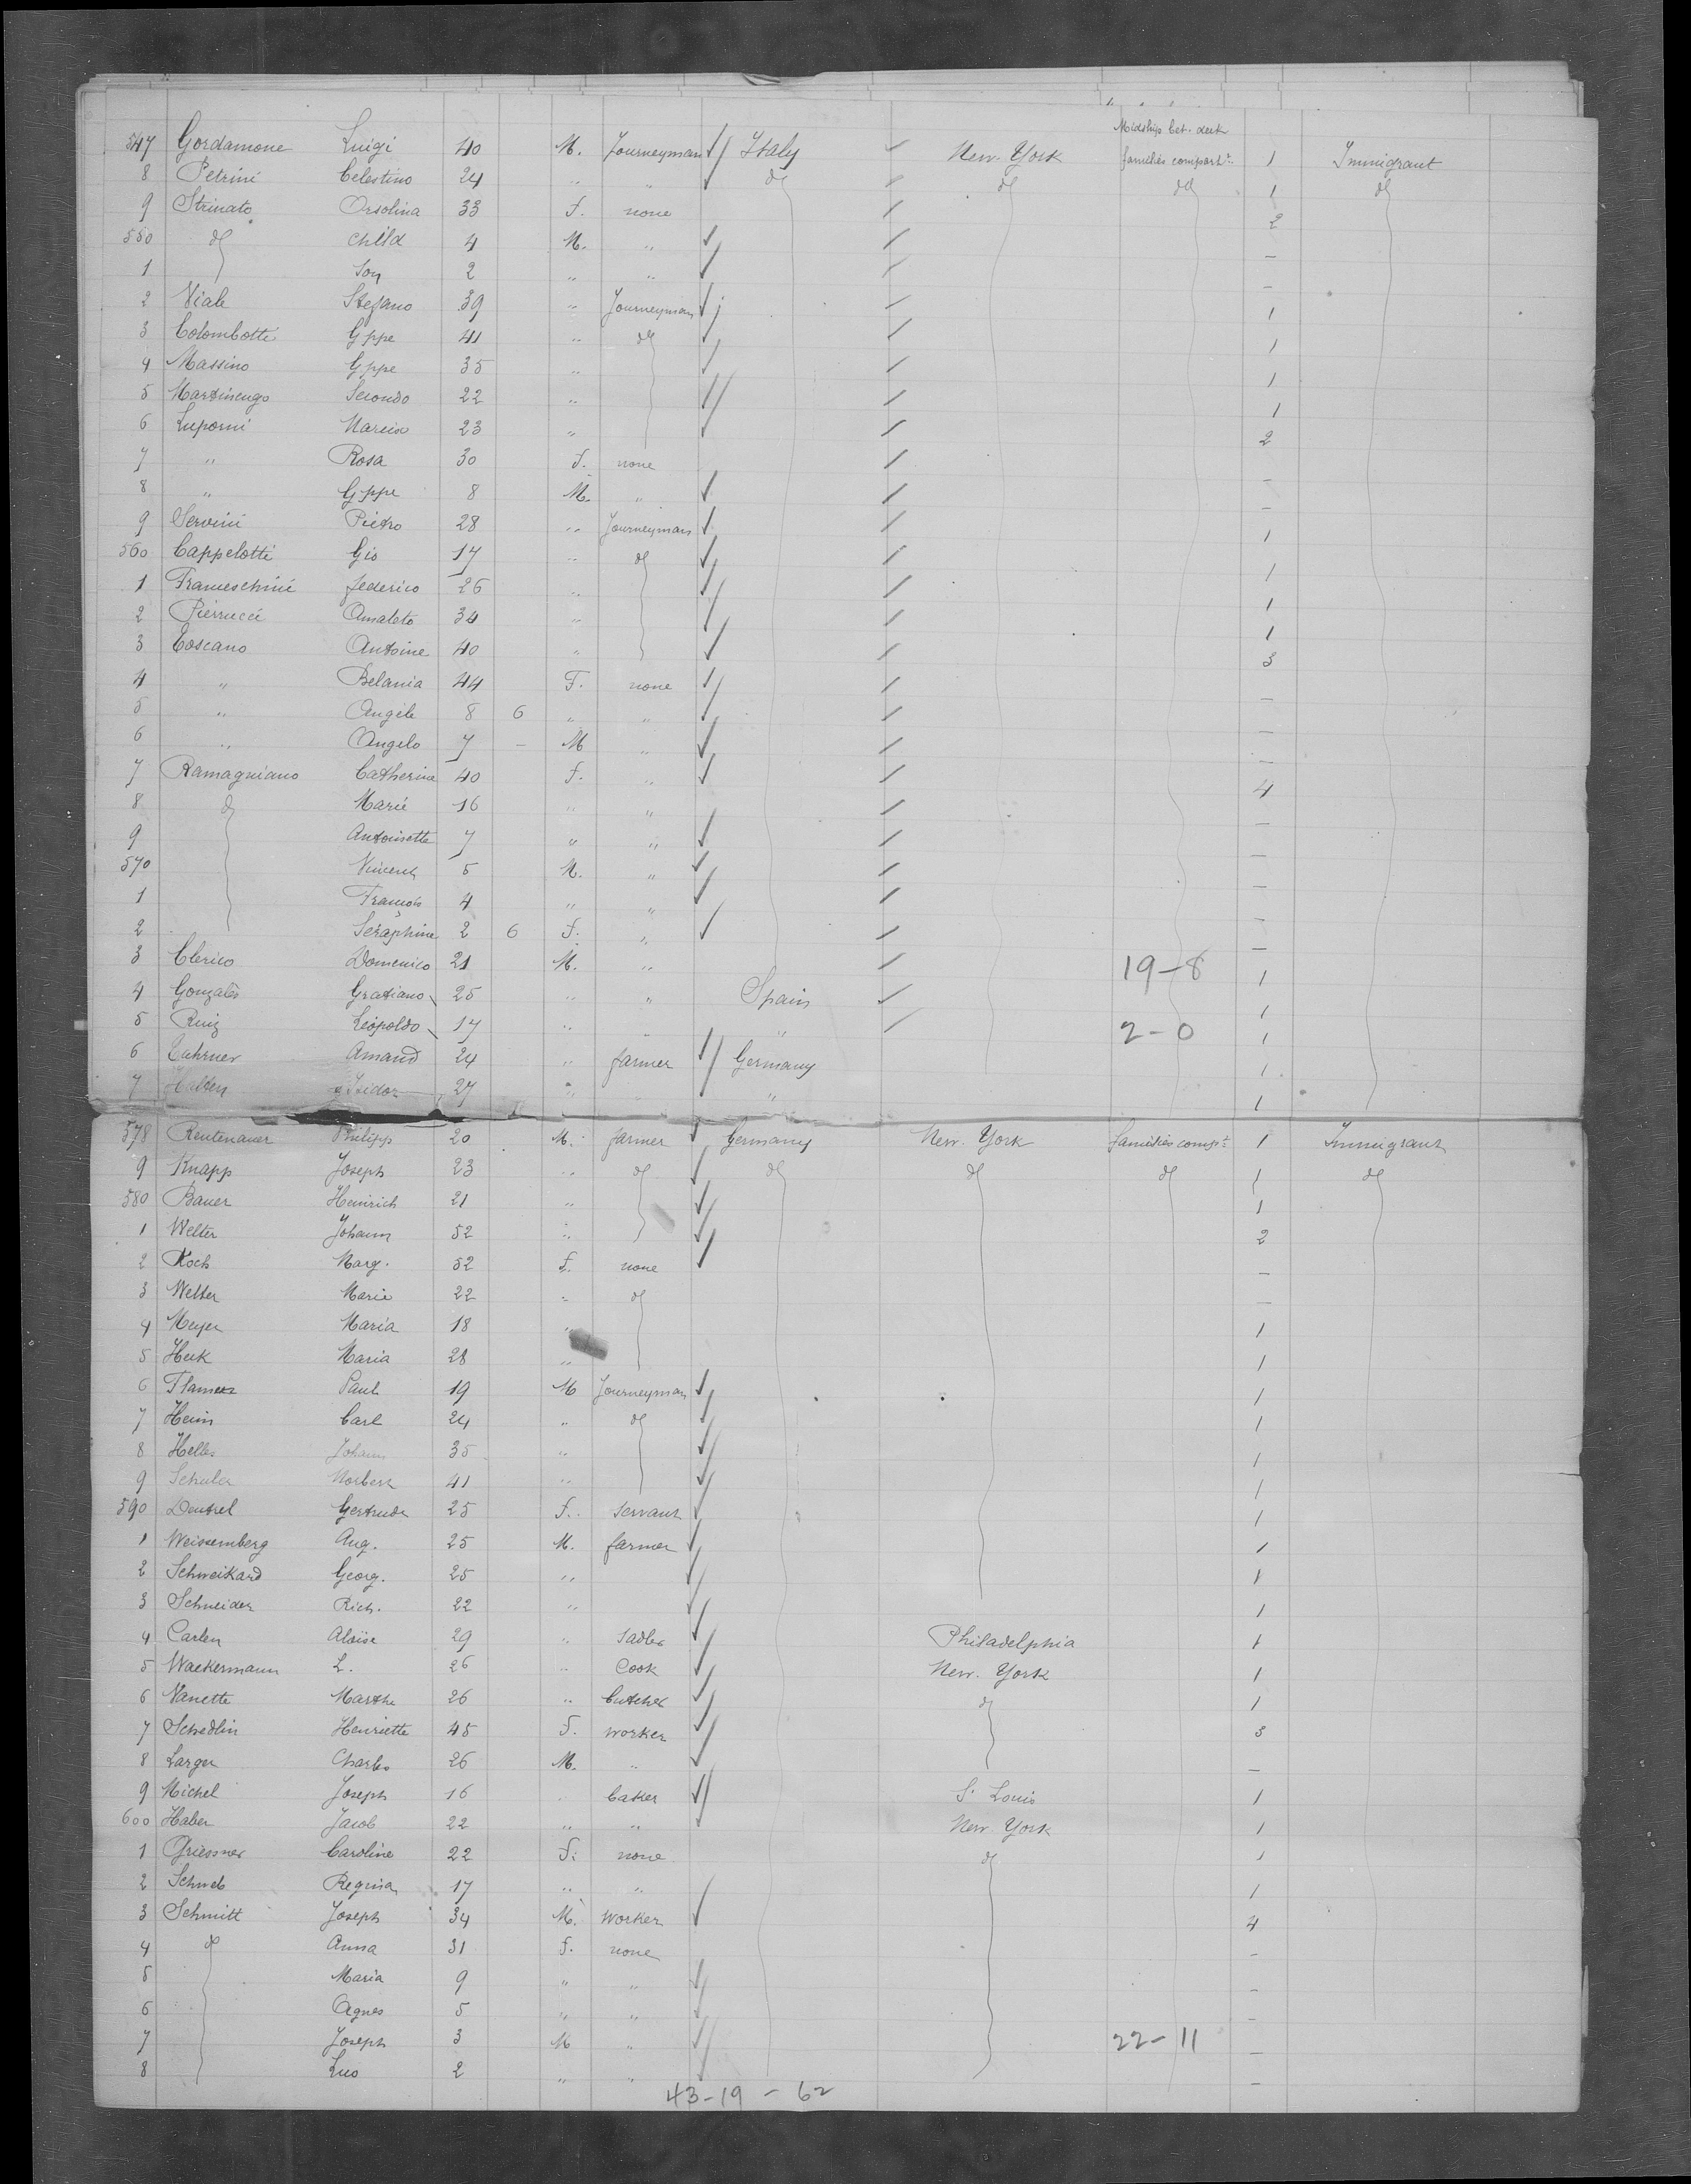 Midship bet. deck
547 Gordamone Luigi 40 M. Journeyman Italy New. York families compart. 1 Immigrant
8 Petrini Celestino 24 " " do do do 1 do
9 Strinato Orsolina 33 F. none 2
550 do child 4 M. " —
1 Son 2 " " —
2 Viale Stefano 39 " Journeyman 1
3 Colombotti Gppe 41 " do 1
4 Massino Gppe 35 " 1
5 Martinengo Secondo 22 " 1
6 Luporni Narciso 23 " 2
7 " Rosa 30 F. none —
8 " Gppe 8 M. " —
9 Servini Pietro 28 " Journeyman 1
560 Cappelotti Gio 17 " do 1
1 Franceschini federico 26 " 1
2 Pierrucci Amaleto 34 " 1
3 Toscano Antoine 40 " 3
4 " Belania 44 F. none —
5 " Angele 8 6 " " —
6 " Angelo 7 — M " —
7 Ramagniano Catherine 40 F. " 4
8 do Marie 16 " " —
9 Antoinette 7 " " —
570 Vincent 5 M. " —
1 François 4 " " —
2 Seraphine 2 6 F. " —
3 Clerico Domenico 21 M. " 19-8 1
4 Gonzales Gratiano 25 " " Spain 1
5 Ruiz Léopoldo 17 " " 2-0 1
6 Amand 24 " farmer Germany 1
7 Halden Isidor 27 " " " 1
578 Reutenauer Philipp 20 M. farmer Germany New. York families compt. 1 Immigrant
9 Knapp Joseph 23 " do do do do 1 do
580 Bauer Heinrich 21 " 1
1 Welter Johann 52 " 2
2 Koch Marg. 52 F. none —
3 Welter Marie 22 " do —
4 Meyer Maria 18 " 1
5 Heck Maria 28 " 1
6 Paul 19 M Journeyman 1
7 Heim Carl 24 " do 1
8 Helles Johann 35 " 1
9 Schuler Norbert 41 " 1
590 Deutrel Gertrude 25 F. Servant 1
1 Weissemberg Aug. 25 M. farmer 1
2 Schweikard Georg. 25 " 1
3 Schneider Rich. 22 " 1
4 Carlen Aloise 29 " Sadler Philadelphia 1
5 Wackermann L. 26 " Cook New. York 1
6 Nanette Marthe 26 " butcher do 1
7 Schedlin Henriette 45 F. worker 3
8 Larger Charles 26 M. " —
9 Michel Joseph 16 " baker St. Louis 1
600 Haber Jacob 22 " " New York 1
1 Griessner Caroline 22 F. none do 1
2 Schweb Regina 17 " " 1
3 Schmitt Joseph 34 M. Worker 4
4 do Anna 31 F. none —
5 Maria 9 " " —
6 Agnes 5 " " —
7 Joseph 3 M " 22-11 —
8 Leo 2 " " —
43-19-62